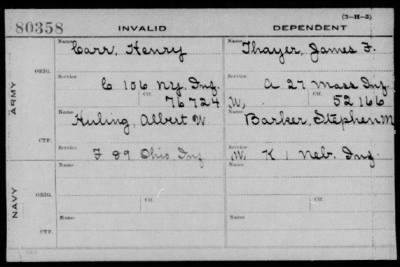 (3-H-3)
80358 INVALID DEPENDENT
Name Carr, Henry Name Thayer, James F.
ORIG.
Service E 106 N.Y. Inf. Service A 27 Mass Inf.
Ctf. 76724 W, Ctf. 52166
ARMY
Name Huling, Albert W Name Barker, Stephen M
CTF.
Service F 89 Ohio Inf Service W K 1 Neb. Inf.
Name Name
ORIG.
NAVY
Service Service
Name Name
CTF.
Service Service